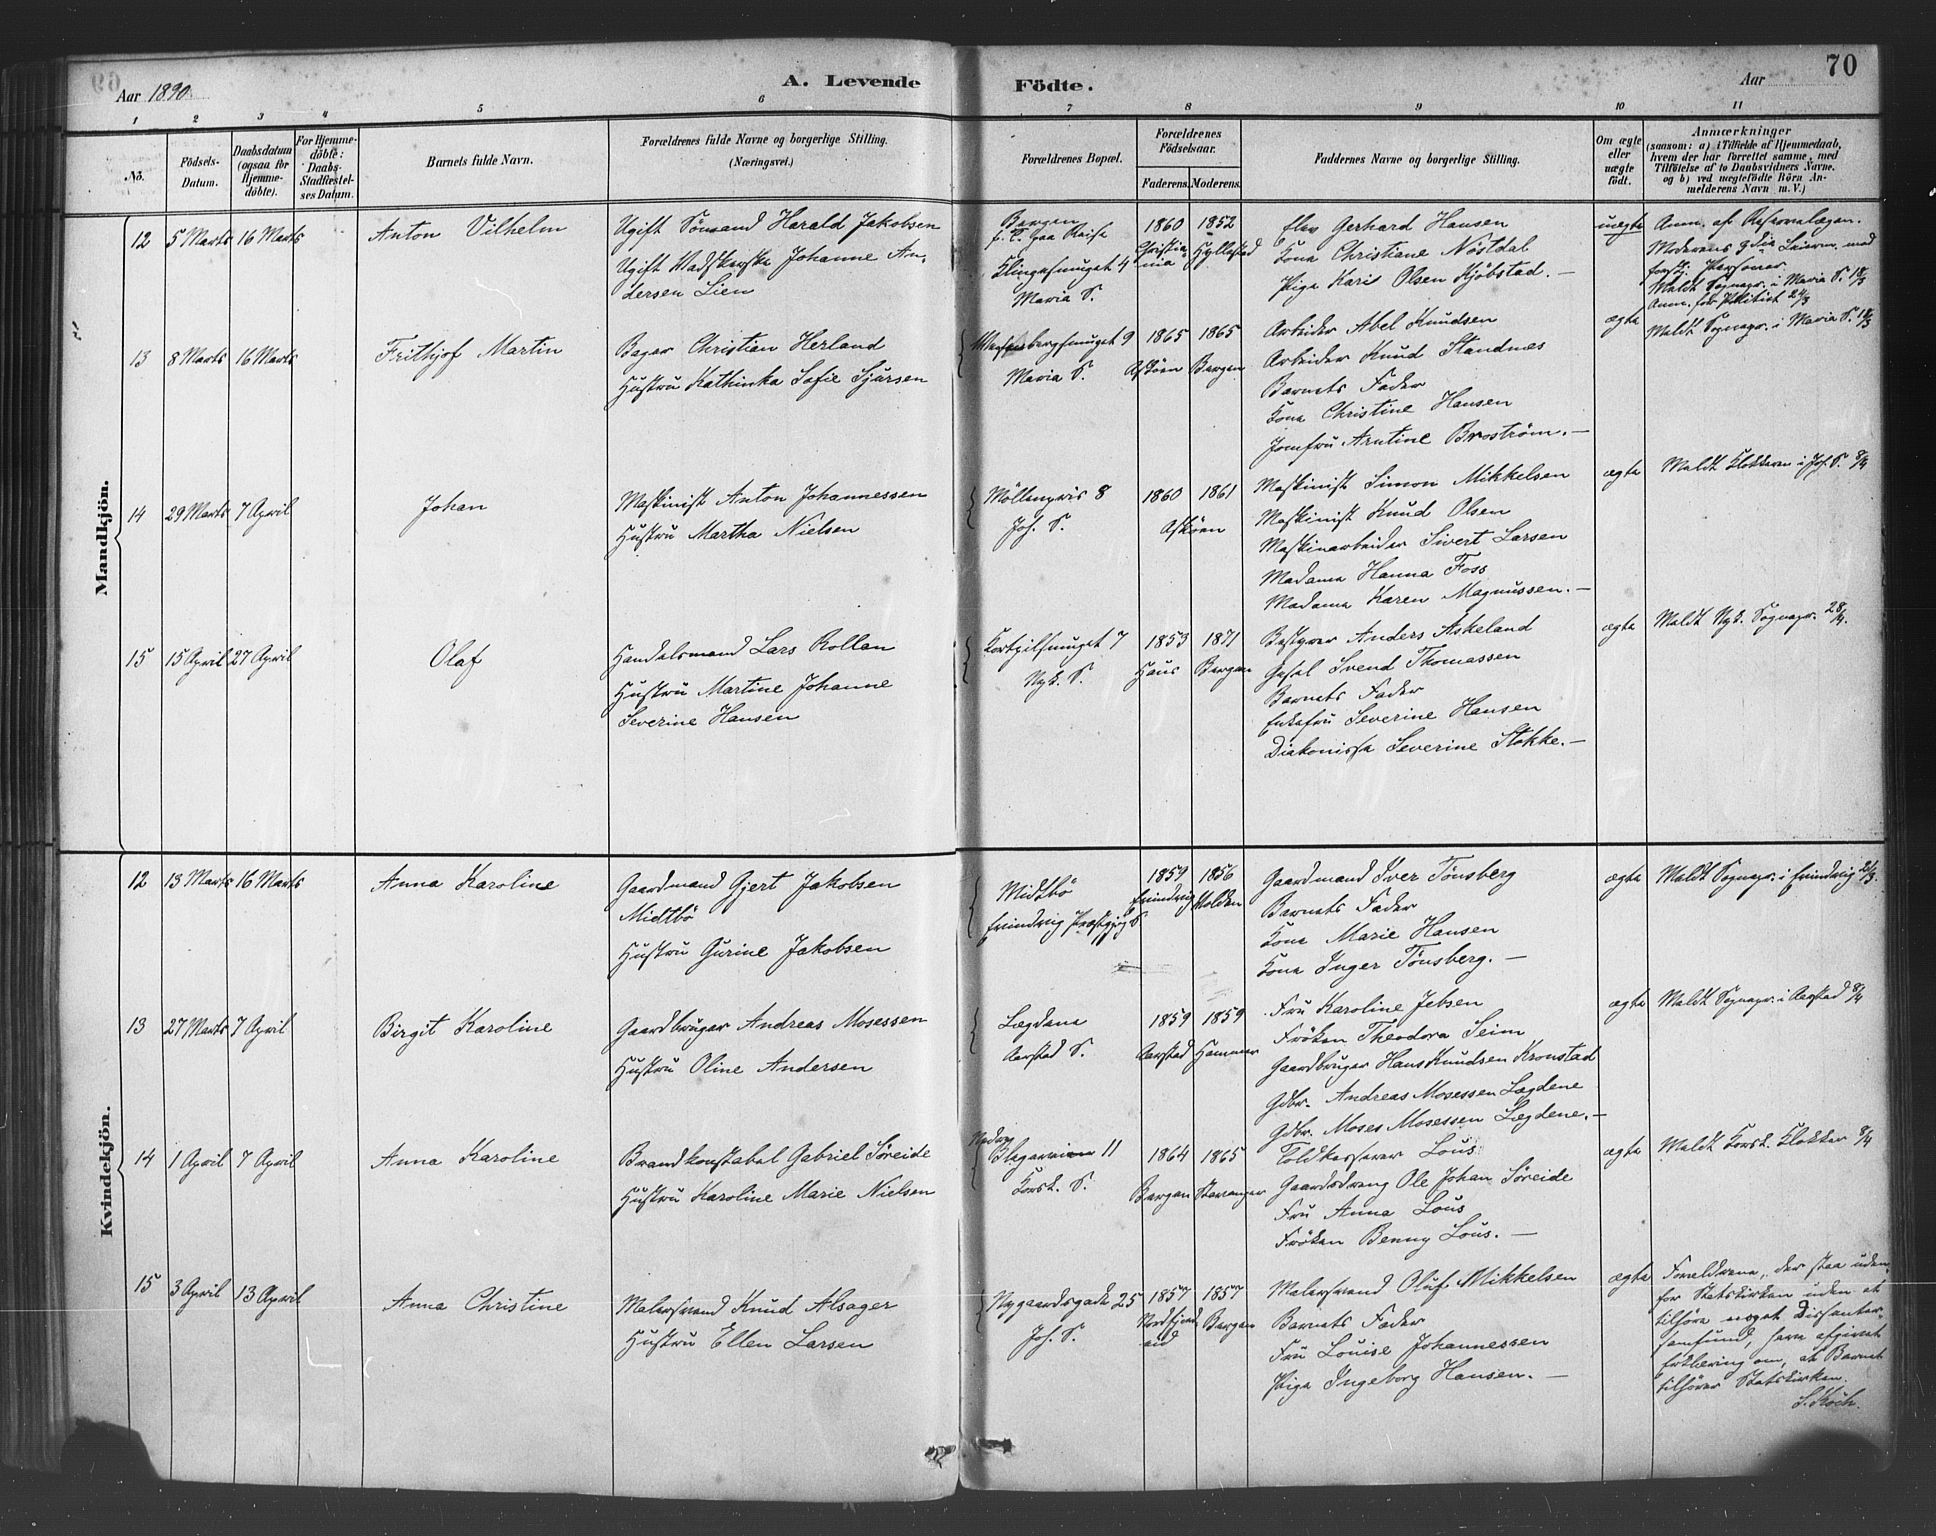 Aar 1890
A. Levende
Födte.
Aar
70
1 2 3 4 5 6 7 8 9 10 11
No.
Födsels-
Datum.
Daabsdatum
(ogsaa for
Hjemme-
döbte).
For Hjemme-
döbte:
Daabs-
Stadfæstel-
ses Datum.
Barnets fulde Navn.
Forældrenes fulde Navne og borgerlige Stilling.
(Næringsvei.)
Forældrenes Bopæl.
Forældrenes
Födselsaar.
Faderens. Moderens.
Faddernes Navne og borgerlige Stilling.
Om ægte
eller
uægte
födt.
Anmærkninger
(saasom: a) i Tilfælde af Hjemmedaab,
hvem der har forrettet samme, med
Tilföielse af to Daabsvidners Navne.
og b) ved uægtefödte Börn An-
melderens Navn m. V.)
Mandkjön.
12 5 Marts 16 Marts
Anton Vilhelm
Ugift Sömand Harald Jakobsen
Ugift Johanne An-
dersen Lien
Bergen
f. T. paa Reise
Klingesmuget 4
Maria S.
1860 Christia-
nia
1852 Hyllestad
Elev Gerhard Hansen
Kone Christiane Nöstdal
Pige Kari Olsen Kjöbstad.
uægte
Anm. af
Moderens 9die Leierm. med
forskj. Personer
Meldt Sognepr. i Maria S. 18/3
Anm. for Politiet 24/3
13 8 Marts 16 Marts
Frithjof Martin
Bager Christian Herland
Hustru Kathinka Sofie Sjursen
9
Maria S.
1865 Asköen
1865 Bergen
Arbeider Abel Knudsen
Arbeider Knud Standnes
Barnets Fader
Kone Christine Hansen
Jomfru Arntine Broström.
ægte
Meldt Sognepr. i Maria S. 18/3
14 29 Marts 7 April
Johan
Maskinist Anton Johannessen
Hustru Martha Nielsen
8
Joh. S.
1860 1861
Asköen
Maskinist Simon Mikkelsen
Maskinist Knud Olsen
Maskinarbeider Sivert Larsen
Madame Hanna Foss
Madame Karen Magnussen.
ægte
Meldt Klokkeren i Joh. S. 8/4
15 15 April 27 April
Olaf
Handelsmand Lars Rollan
Hustru Martine Johanne
Severine Hansen
Kortpilsmuget 7
Nyk. S.
1853 Haus
1871 Bergen
Bestyrer Anders Askeland
Gesel Svend Thomassen
Barnets Fader
Enkefru Severine Hansen
Diakonisse Severine Stokke.
ægte
Meldt Nyk. Sognepr. 28/4.
Kvindekjön.
12 13 Marts 16 Marts
Anna Karoline
Gaardmand Gjert Jakobsen
Midtbö
Hustru Gurine Jakobsen
Midtbö
Evindvig Præstegj.
1859 Evindvig
1856 Holden
Gaardmand Iver Tönsberg
Barnets Fader
Kone Marie Hansen
Kone Inger Tönsberg.
ægte
Meldt Sognepr. i Evindvig 21/3.
13 27 Marts 7 April
Birgit Karoline
Gaardbruger Andreas Mosessen
Hustru Oline Andersen
Lægdene
Aarstad S.
1859 Aarstad
1859 Hammer
Fru Karoline Jebsen
Fröken Theodora Seim
Gaardbruger Hans Knudsen Kronstad
Gdbr. Andreas Mosessen Lægdene
Gdbr. Moses Mosessen Lægdene.
ægte
Meldt Sognepr. i Aarstad 8/4
14 1 April 7 April
Anna Karoline
Brandkonstabel Gabriel Söreide
Hustru Karoline Marie Nielsen
Nedre
Blegerveien 11
Korsk. S.
1864 Bergen
1865 Stavanger
Toldkasserer Lous
Gaardsdreng Ole Johan Söreide
Fru Anna Lous
Fröken Benny Lous.
ægte
Meldt Korsk. Klokker 8/4
15 3 April 13 April
Anna Christine
Malersvend Knud Alsager
Hustru Ellen Larsen
Nygaardsgade 25
Joh. S.
1857 Nordfjord-
eid
1857 Bergen
Malersvend Oluf Mikkelsen
Barnets Fader
Fru Louise Johannessen
Pige Ingeborg Hansen.
ægte
Forældrene, der staa uden-
for Statskirken uden at
tilhöre noget Dissenter-
samfund, have afgivet
Erklæring om, at Barnet
tilhörer Statskirken.
S. Koch.